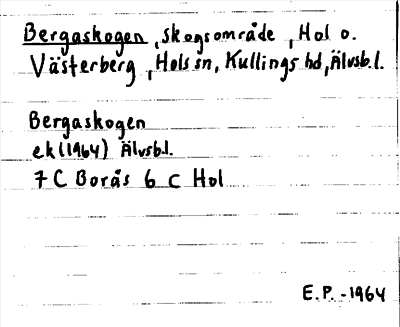 Bergaskogen, skogsområde, Hol o.
Västerberg, Hols sn, Kullings hd, Älvsb.l.
Bergaskogen
ek (1964) Älvsb.l.
7 C Borås 6 c Hol
E.P. -1964